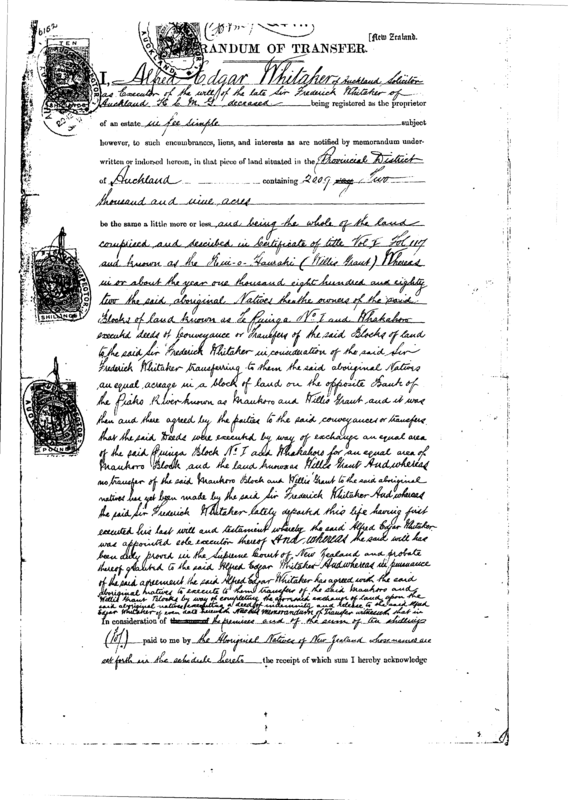 6162
[New Zealand.
MEMORANDUM OF TRANSFER.
I, Alfred Edgar Whitaker of Auckland Solicitor
as Executor of the will of the late Sir Frederick Whitaker of
Auckland K. C. M. G. deceased being registered as the proprietor
of an estate in fee simple subject
however, to such encumbrances, liens, and interests as are notified by memorandum under-
written or indorsed hereon, in that piece of land situated in the Provincial District
of Auckland containing 2009 Two
thousand and nine acres
be the same a little more or less, and being the whole of the land
comprised and described in Certificate of title Vol Fol 117
and known as the Kiwi-o-Haurahi (Willis Grant) Whereas
in or about the year one thousand eight hundred and eighty
two the said aboriginal Natives the owners of the said
Blocks of land known as Te Puinga No. I and Whakahoro
executed deeds of Conveyance or Transfers of the said Blocks of land
to the said Sir Frederick Whitaker in consideration of the said Sir
Frederick Whitaker transferring to them the said aboriginal Natives
an equal acreage in a block of land on the opposite Bank of
the Piako River known as Maukoro and Willis Grant, and it was
then and there agreed by the parties to the said conveyances or transfers
that the said Deeds were executed by way of exchange an equal area
of the said Puinga Block No. I and Whakahoro for an equal area of
Maukoro Block and the land known as Willis Grant And whereas
no transfer of the said Maukoro Block and Willis' Grant to the said aboriginal
natives has yet been made by the said Sir Frederick Whitaker And whereas
the said Sir Frederick Whitaker lately departed this life having first
executed his last will and testament whereby the said Alfred Edgar Whitaker
was appointed sole executor thereof And whereas the said will has
been duly proved in the Supreme Court of New Zealand and probate
thereof granted to the said Alfred Edgar Whitaker And whereas in pursuance
of the said agreement the said Alfred Edgar Whitaker has agreed with the said
aboriginal natives to execute to them transfers of the said Maukoro and
Willis Grant Blocks by way of completing the aforesaid exchange of lands upon the
said aboriginal natives executing a deed of indemnity and release to the said Alfred
Edgar Whitaker of even date herewith Memorandum of Transfer witnesseth that in
In consideration of the premises and of the sum of ten shillings
(10/-) paid to me by the Aboriginal Natives of New Zealand whose names are
set forth in the schedule hereto the receipt of which sum I hereby acknowledge